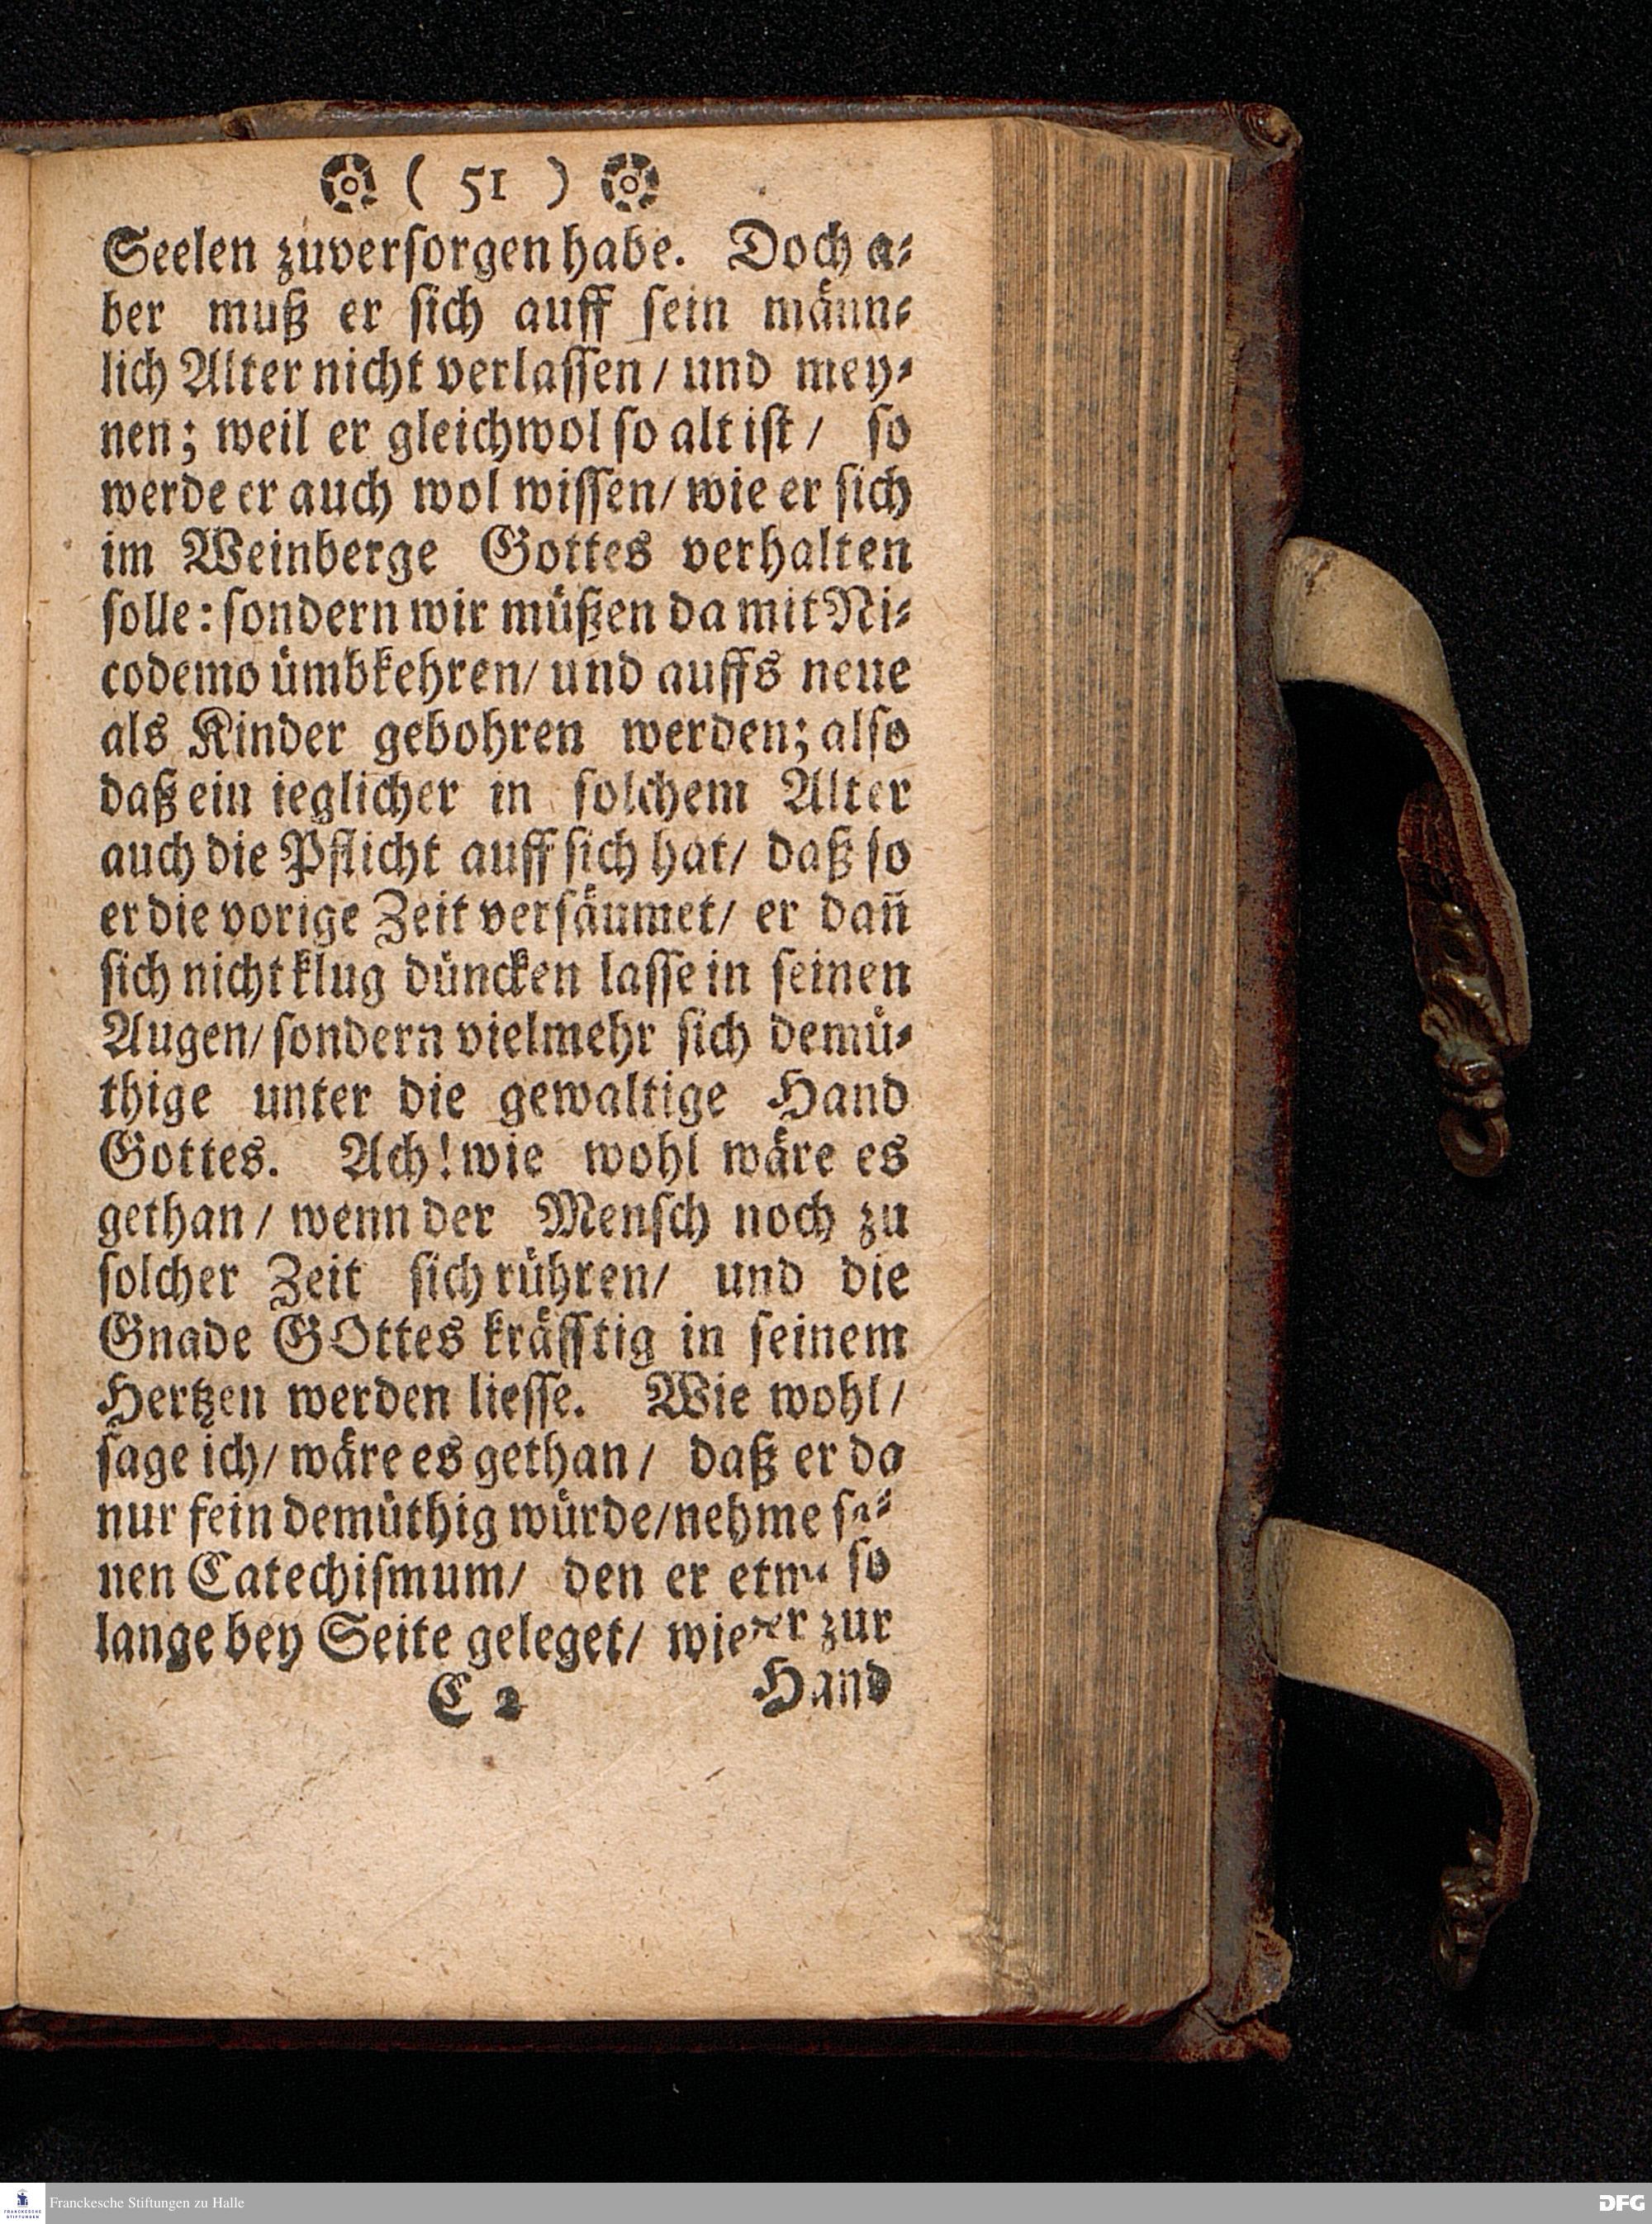 ( 51 )
Seelen zuverſorgen habe. Doch a⸗
ber muß er ſich auff ſein männ⸗
lich Alter nicht verlaſſen / und mey⸗
nen; weil er gleichwol ſo alt iſt / ſo
werde er auch wol wiſſen / wie er ſich
im Weinberge Gottes verhalten
ſolle: ſondern wir müßen da mit Ni⸗
codemo ümbkehren / und auffs neue
als Kinder gebohren werden; alſo
daß ein ieglicher in ſolchem Alter
auch die Pflicht auff ſich hat / daß ſo
er die vorige Zeit verſäumet / er dañ
ſich nicht klug düncken laſſe in ſeinen
Augen / ſondern vielmehr ſich demü⸗
thige unter die gewaltige Hand
Gottes. Ach! wie wohl wäre es
gethan / wenn der Menſch noch zu
ſolcher Zeit ſich rühren / und die
Gnade GOttes kräfftig in ſeinem
Hertzen werden lieſſe. Wie wohl /
ſage ich / wäre es gethan / daß er da
nur fein demüthig würde / nehme
nen Catechiſmum / den er ſo
lange bey Seite geleget / wieder zur
C 2 Hand
Franckesche Stiftungen zu Halle
FRANCKESCHE
STIFTUNGEN
DFG